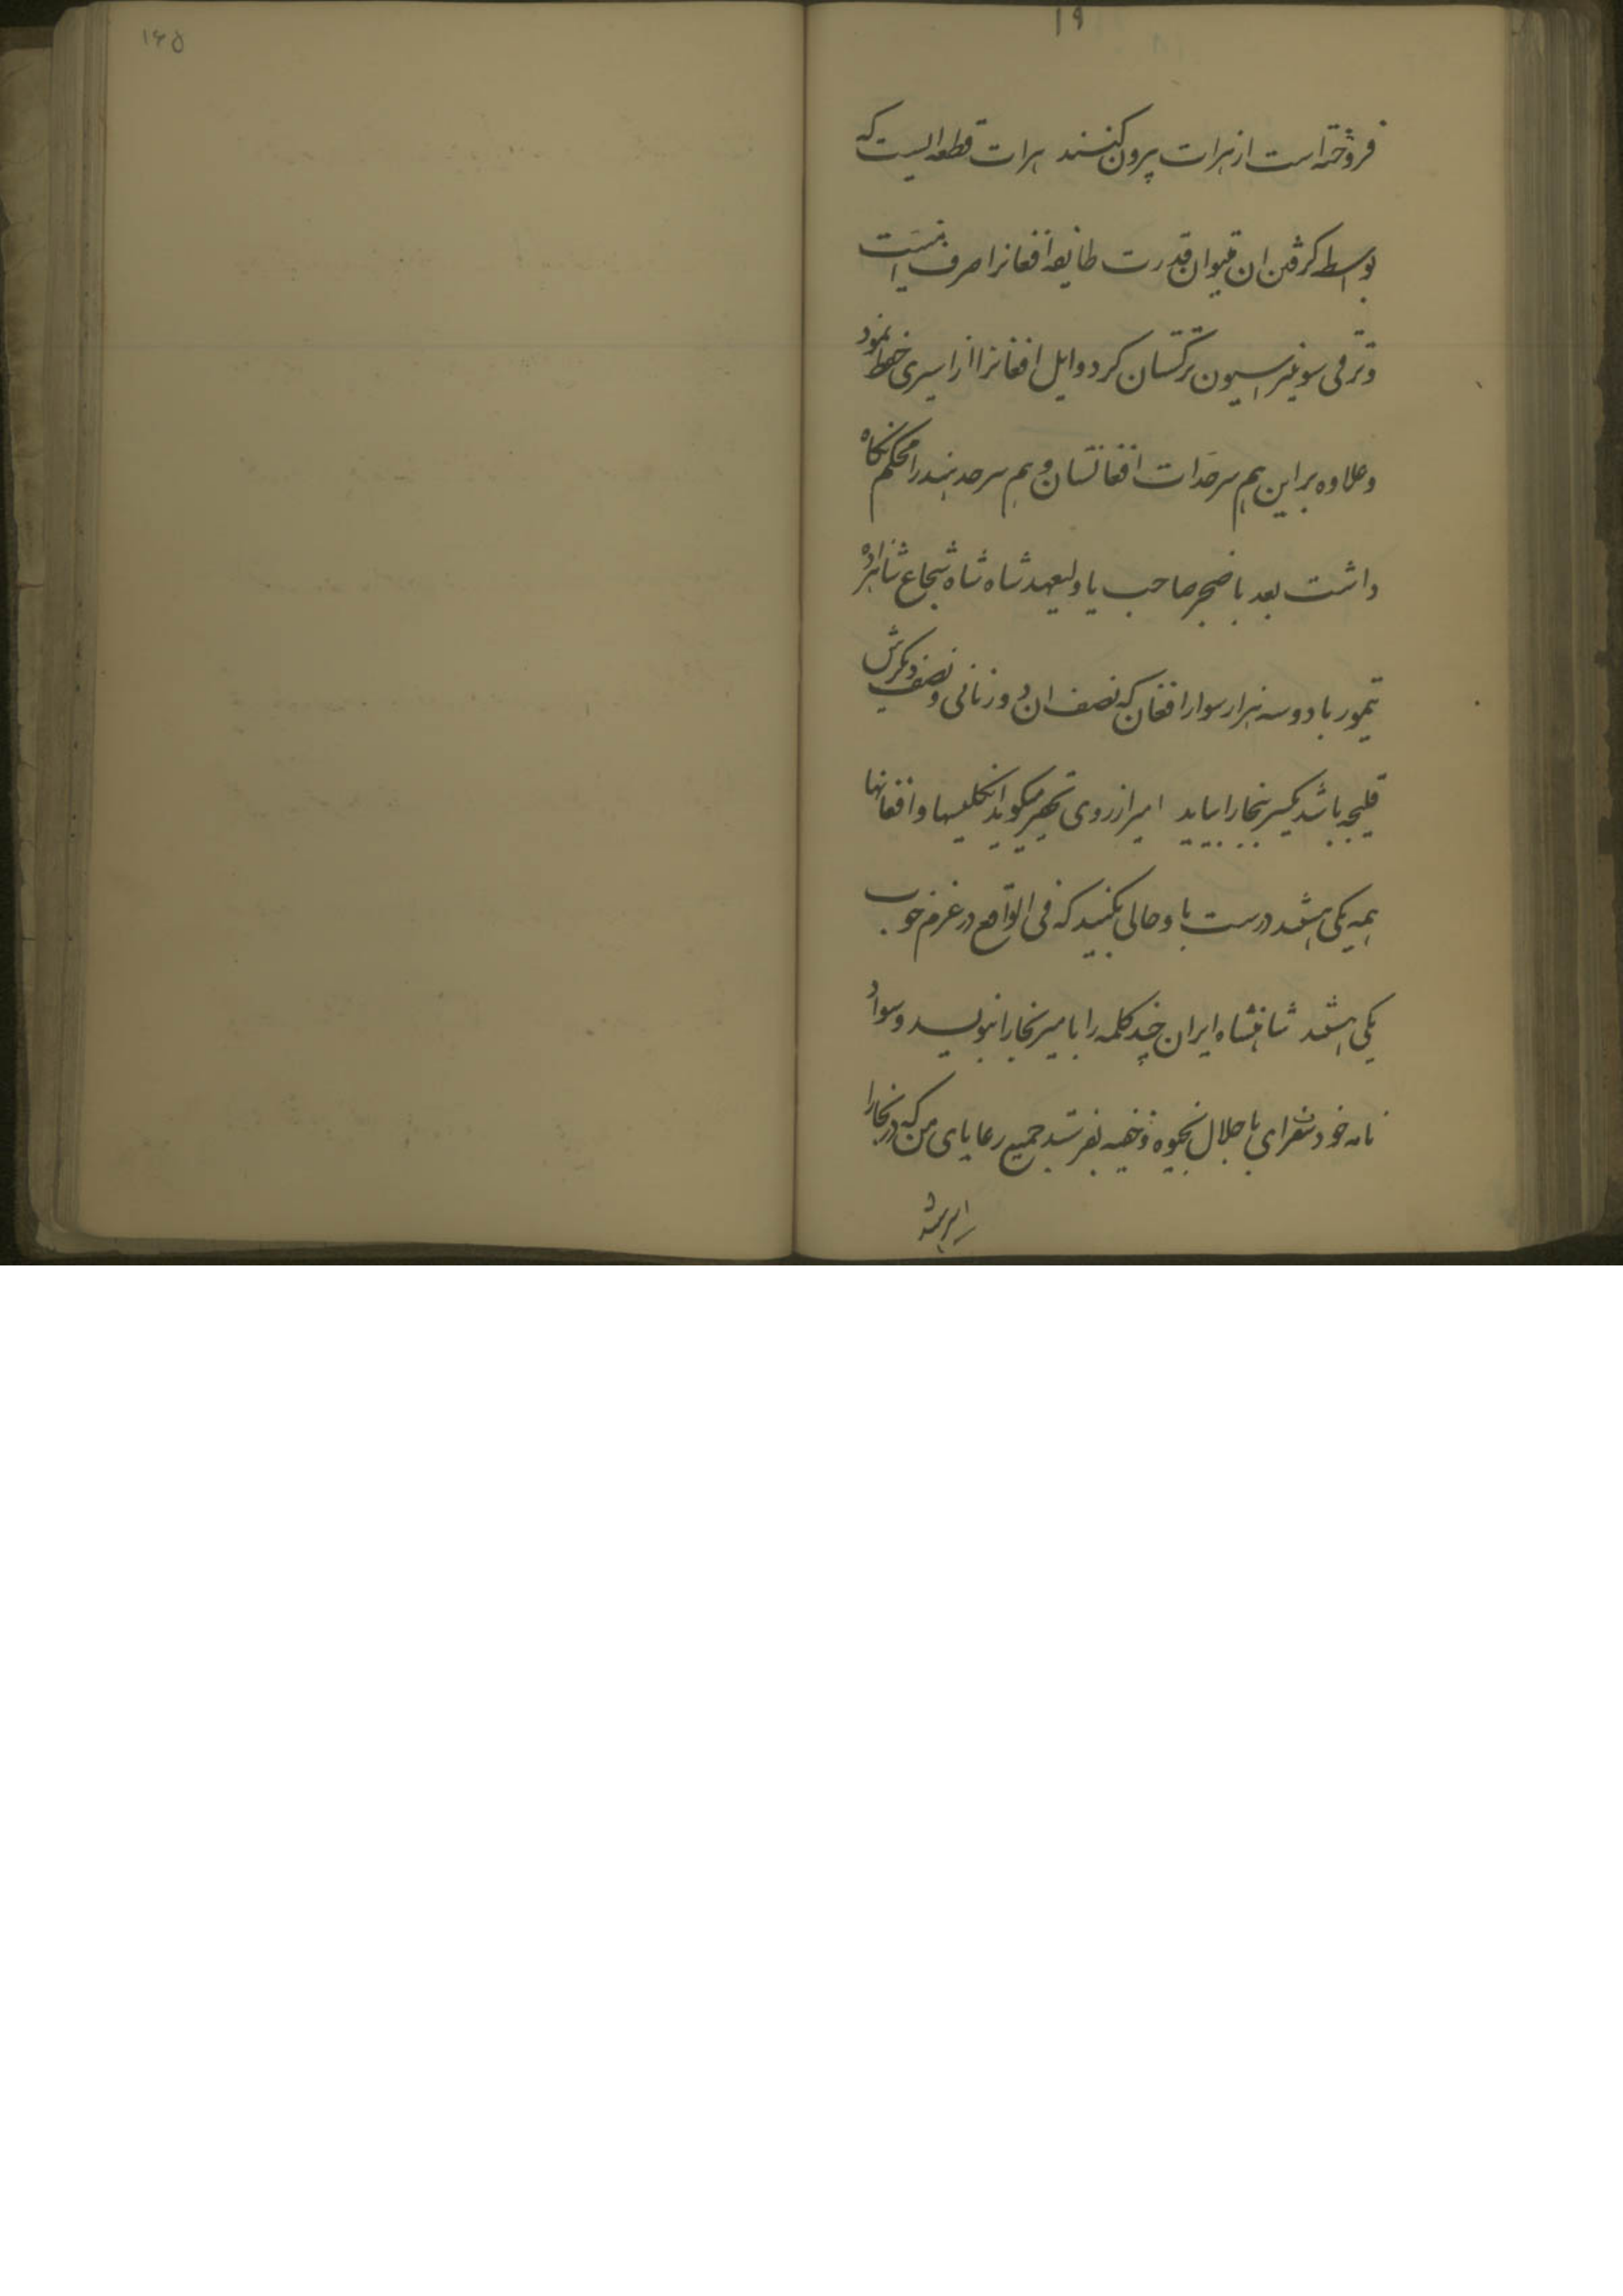 ۱۹
فروخته است از هرات بیرون کنند هرات قطعه ایست که
بواسطه گرفتن ان میتوان قدرت طایفه افغانرا صرف امنیت
و ترقی سویلیزاسیون ترکستان کرد و اهل افغانرا از اسیری حفظ نمود
و علاوه بر این هم سرحدات افغانستان و هم سرحد هند را محکم نگاه
داشت بعد باضجر صاحب یا ولیعهد شاه شاه شجاع شاهزاده
تیمور با دو سه هزار سوار افغان که نصف ان دورزانی و نصف دیگرش
قلیچه باشد یکسر ببخارا بیاید امیر از روی تحیر میگوید انگلیسها و افغانها
همه یکی هستند درست باو حالی بکنید که فی الواقع در غرض خوب
یکی هستند شاهنشاه ایران چند کلمه را بامیر بخارا بنویسد و سواد
نامه خود سفرای با جلال بخیوه و غیره بفرستد جمیع رعایای من که در بخارا
۱۶۵